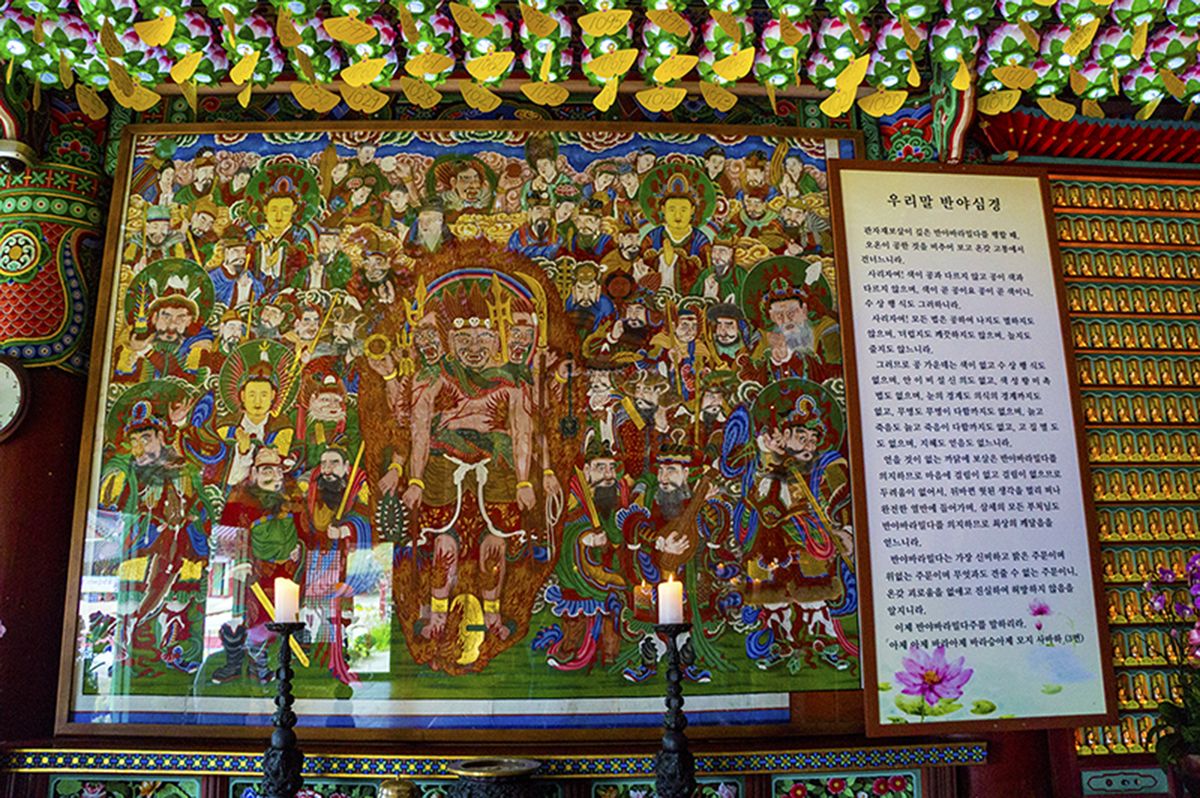 1095
우리말 반야심경
관자재보살이 깊은 반야바라밀다를 행할 때,
오온이 공한 것을 비추어 보고 온갖 고통에서
건너느니라.
사리자여! 색이 공과 다르지 않고 공이 색과
다르지 않으며, 색이 곧 공이요 공이 곧 색이니,
수 상 행 식도 그러하니라.
사리자여! 모든 법은 공하여 나지도 멸하지도
않으며, 더럽지도 깨끗하지도 않으며, 늘지도
줄지도 않느니라.
그러므로 공 가운데는 색이 없고 수 상 행 식도
없으며, 안 이 비 설 신 의도 없고, 색 성 향 미 촉
법도 없으며, 눈의 경계도 의식의 경계까지도
없고, 무명도 무명이 다함까지도 없으며, 늙고
죽음도 늙고 죽음이 다함까지도 없고, 고 집 멸 도
도 없으며, 지혜도 얻음도 없느니라.
얻을 것이 없는 까닭에 보살은 반야바라밀다를
의지하므로 마음에 걸림이 없고 걸림이 없으므로
두려움이 없어서, 뒤바뀐 헛된 생각을 멀리 떠나
완전한 열반에 들어가며, 삼세의 모든 부처님도
반야바라밀다를 의지하므로 최상의 깨달음을
얻느니라.
반야바라밀다는 가장 신비하고 밝은 주문이며
위없는 주문이며 무엇과도 견줄 수 없는 주문이니,
온갖 괴로움을 없애고 진실하여 허망하지 않음을
알지니라.
이제 반야바라밀다주를 말하리라.
아제 아제 바라아제 바라승아제 모지 사바하 (3번)